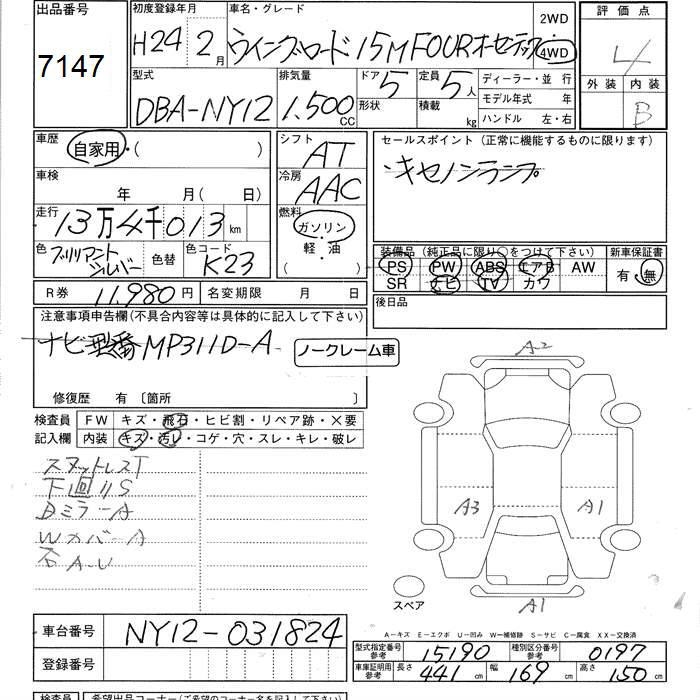 出品番号 初度登録年月 車名・グレード 2WD 評価点
7147 H24 2月 ウイングロード 15M FOUR オーセンテック 4WD 4
型式 排気量 ドア 5 定員 5人 ディーラー・並行 外装 内装
DBA-NY12 1,500CC 形状 積載 kg モデル年式 年 B
ハンドル 左・右
車歴 自家用・( ) シフト AT セールスポイント (正常に機能するものに限ります)
車検 年 月( 日) 冷房 AAC ・キセノンランプ
走行 13万4千013km 燃料 ガソリン 軽・油
色 ブリリアントシルバー 色替 色コード K23 装備品 (純正品に限り○をつけて下さい) 新車保証書
PS PW ABS エアB AW 有・無
SR ナビ TV カワ
R券 11,980円 名変期限 月 日 後日品
注意事項申告欄(不具合内容等は具体的に記入して下さい)
ナビ型番 MP311D-A ノークレーム車
修復歴 有 〔箇所 〕
検査員 FW キズ・飛石・ヒビ割・リペア跡・X要
記入欄 内装 キズ・汚レ・コゲ・穴・スレ・キレ・破レ
A2
スタットレスT
下回リS
Dミラ-A
Wカバ-A
石 A-U
A3 A1
スペア
A1
A-キズ E-エクボ U-凹み W-補修跡 S-サビ C-腐食 XX-交換済
車台番号 NY12-031824
型式指定番号 参考 15190 種別区分番号 参考 0197
登録番号
車庫証明用 参考 長さ 441cm 幅 169cm 高さ 150cm
検査員 希望出品コーナー(ご希望のコーナー名を記入下さい)